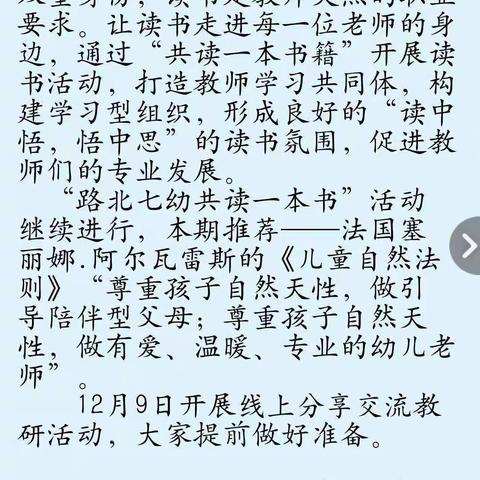 要求。让读书走进每一位老师的身
边，通过“共读一本书籍”开展读
书活动，打造教师学习共同体，构
建学习型组织，形成良好的“读中
悟，悟中思”的读书氛围，促进教
师们的专业发展。
“路北七幼共读一本书”活动
继续进行，本期推荐——法国塞
丽娜.阿尔瓦雷斯的《儿童自然法
则》“尊重孩子自然天性，做引
导陪伴型父母；尊重孩子自然天
性，做有爱、温暖、专业的幼儿老
师”。
12月9日开展线上分享交流教
研活动，大家提前做好准备。